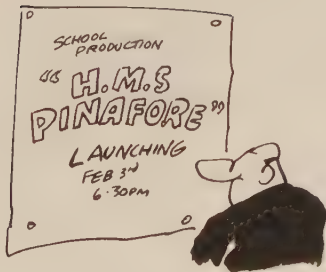 SCHOOL
PRODUCTION
"H.M.S
PINAFORE"
LAUNCHING
FEB 3rd
6·30PM